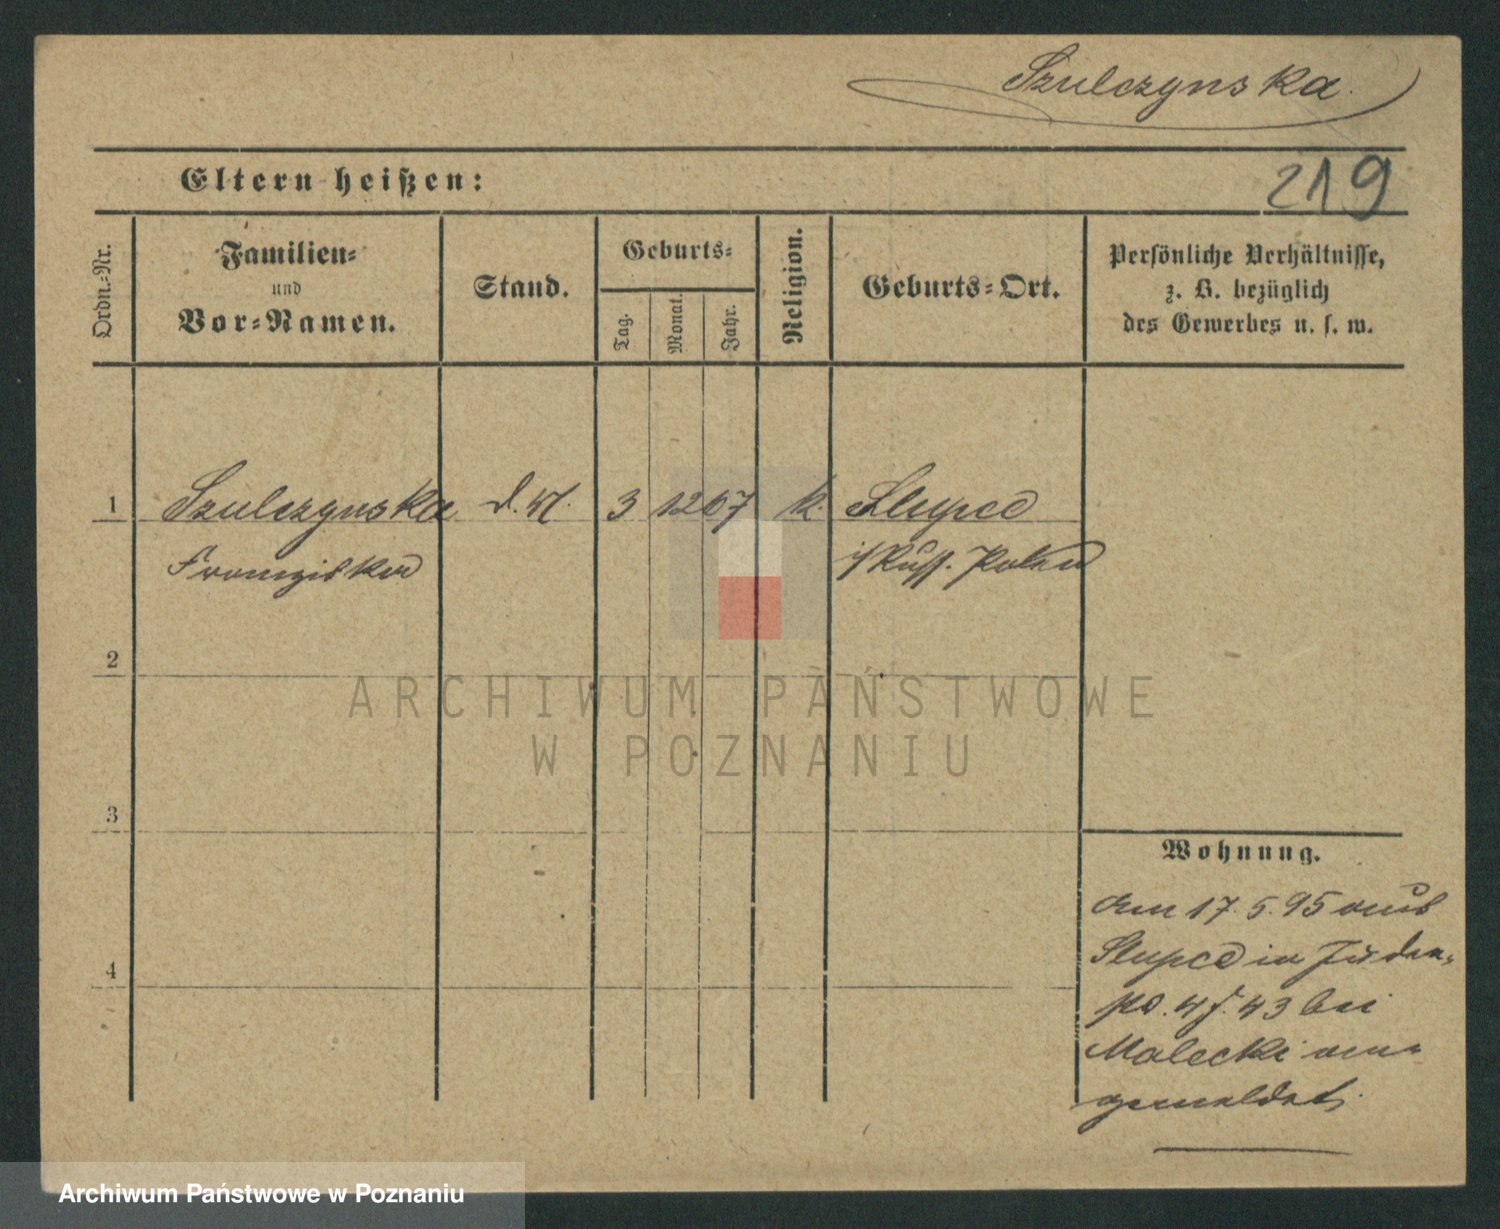 Szulczynska.
Eltern heißen:
219
Ordn.-Nr.
Familien-
und
Vor-Namen.
Stand.
Geburts-
Tag.
Monat.
Jahr.
Religion.
Geburts-Ort.
Persönliche Verhältnisse,
z. B. bezüglich
des Gewerbes u. s. w.
1 Szulczynska 3 12 67 k. Slupce
Franziska i/ Russ. Polen
2
3
4
Wohnung.
Am 17. 5. 95 aus
Slupce in Juden-
43 bei
Malecki an-
gemeldet.
ARCHIWUM PAŃSTWOWE
W POZNANIU
Archiwum Państwowe w Poznaniu